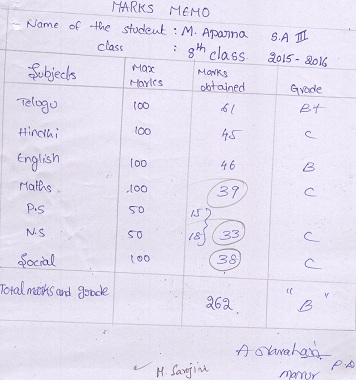 MARKS MEMO
Name of the student : M. Aparna S.A III
class : 8th class 2015-2016
Subjects Max Marks Marks obtained Grade
Telogu 100 61 B+
Hindhi 100 45 C
English 100 46 B
Maths. 100 39 C
P.S 50 15
N.S 50 18 33 C
Social 100 38 C
Total marks and grade 262 " B "
M. Sarojini